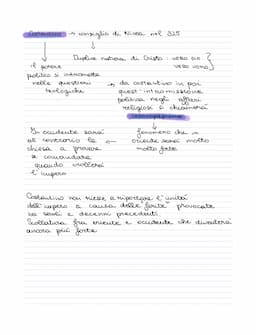 Costantino → consiglio di Nicea nel 325
Duplice natura di Cristo: vero dio
vero uomo
il potere
politico si intromette
nelle questioni
teologiche
→ da costantino in poi
quest'intromissione
politica negli affari
religiosi si chiamerà
cesaropapismo
In occidente sarà
al contrario la
chiesa a provare
a comandare
quando crollerà
l'impero
fenomeno che in
oriente sarà molto
molto forte
Costantino non riesce a ripristinare l'unità
dell'impero a causa delle forti provocate
da secoli e decenni precedenti.
fra oriente e occidente che diventerà
ancora più forte